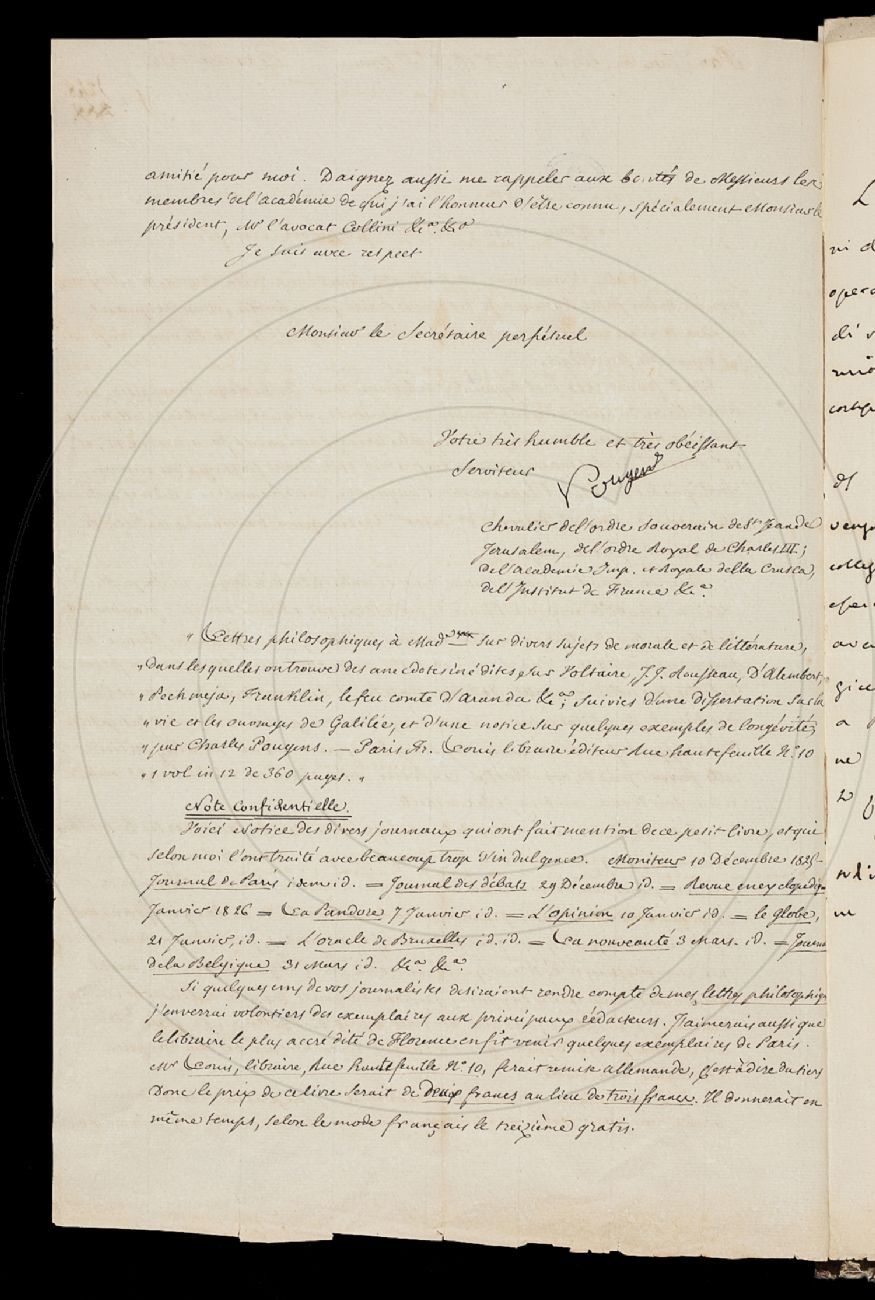 amitié pour moi. Daignez aussi me rappeler aux bontés de Messieurs les
membres de l'académie de qui j'ai l'honneur d'être connu, spécialement Monsieur le
président, Mr l'avocat Collini &ca. &ca
Je suis avec respect
Monsieur le Secrétaire perpétuel
Votre très humble et très obéissant
Serviteur Pougens
Chevalier de l'ordre Souverain de St Jean de
Jerusalem, de l'ordre Royal de Charles III;
de l'academie Imp. et Royale della Crusca,
de l'Institut de France &ca.
" Lettres philosophiques à Madame sur divers sujets de morale et de littérature,
" dans lesquelles on trouve des anecdotes inédites sur Voltaire, J.J. Rousseau, D'Alembert,
" Pechmeja, Franklin, le feu comte d'Aranda &ca; suivies d'une dissertation sur la
" vie et les ouvrages de Galilée, et d'une notice sur quelques exemples de longévité;
" par Charles Pougens. — Paris Fr. Louis libraire éditeur Rue hautefeuille No. 10
" 1 vol in 12 de 360 pages. "
Note Confidentielle.
Voici Notice des divers journaux qui ont fait mention de ce petit livre, et qui
selon moi l'ont traité avec beaucoup trop d'indulgence. Moniteur 10 Décembre 1825 -
Journal de Paris idem id. = Journal des débats 29 Décembre id. = Revue encyclopédiq
Janvier 1826 = La Pandore 7 Janvier id. = L'opinion 10 Janvier id. = le globe,
21 Janvier, id. = L'oracle de Bruxelles id. id. = La nouveauté 3 Mars. id. = Journ
de la Belgique 31 Mars id. &ca. &ca.
Si quelques uns de vos journalistes desiraient rendre compte de mes lettres philosophiq
j'enverrai volontiers des exemplaires aux principaux rédacteurs. J'aimerais aussi que
le libraire le plus accrédité de Florence en fit venir quelques exemplaires de Paris.
Mr Louis, libraire, Rue hautefeuille No. 10, ferait remise allemande, c'est à dire du tiers
Donc le prix de ce livre serait de deux francs au lieu de trois francs. Il donnerait en
même temps, selon le mode français le treizième gratis.